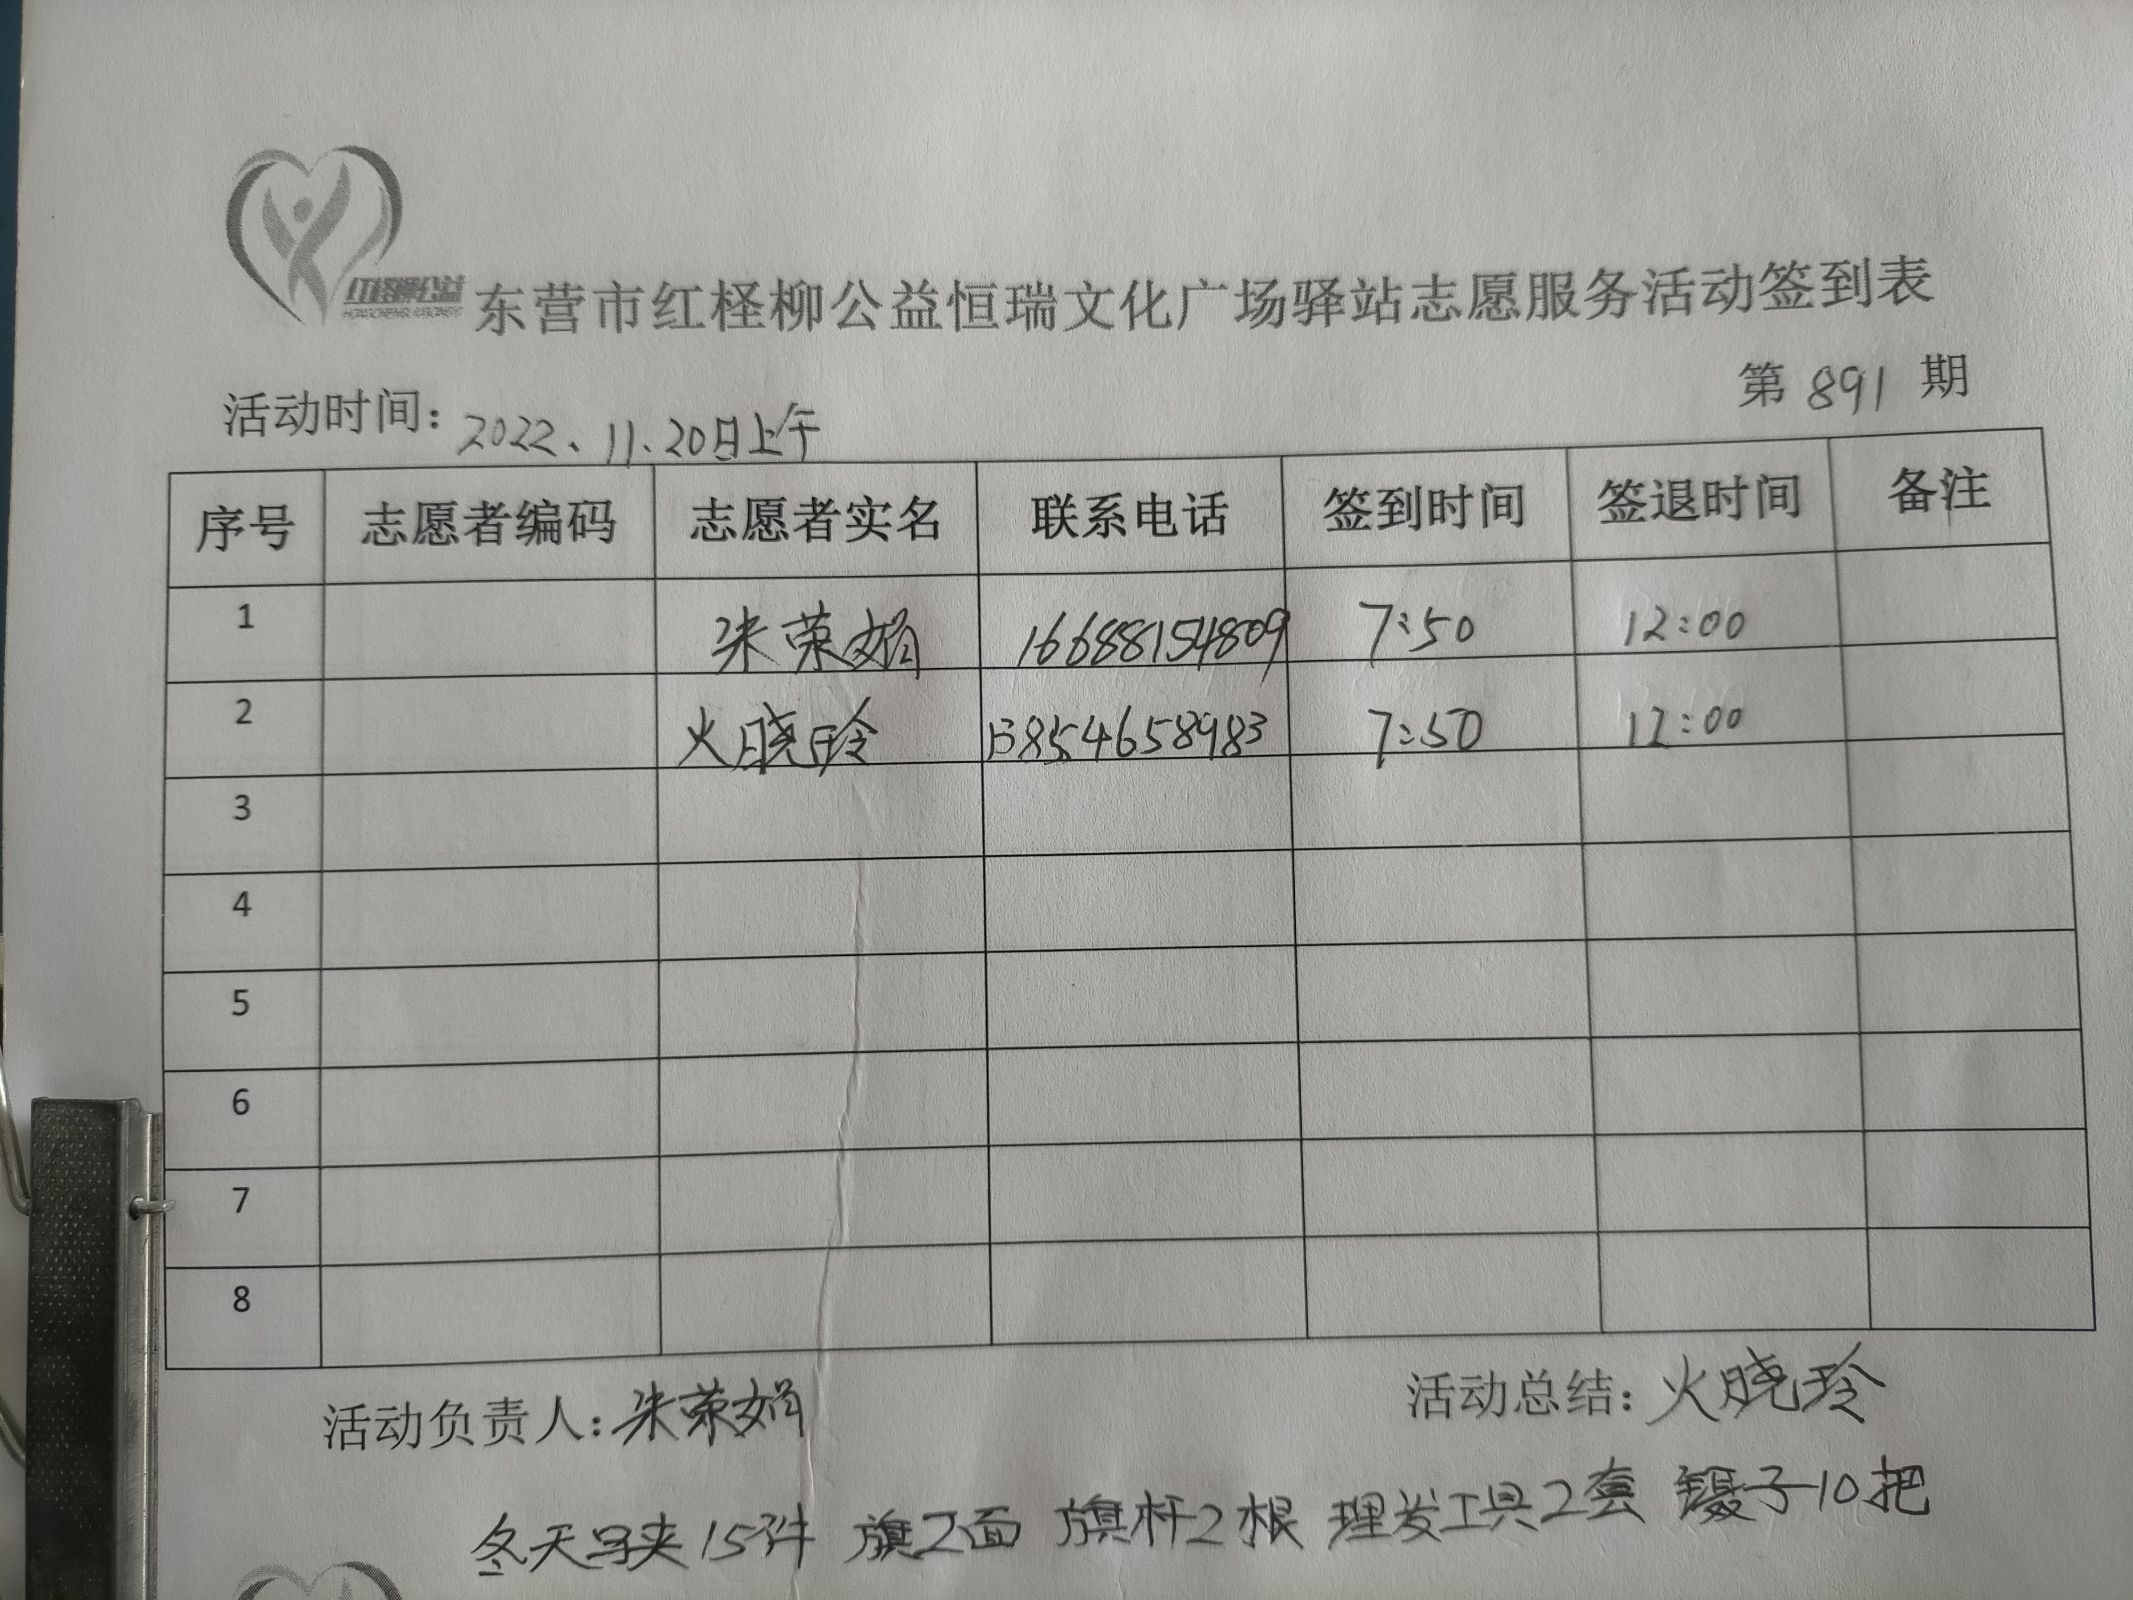 红柽柳公益
东营市红柽柳公益恒瑞文化广场驿站志愿服务活动签到表
第 891 期
活动时间: 2022、11、20日上午
序号 志愿者编码 志愿者实名 联系电话 签到时间 签退时间 备注
1 朱荣娟 16688154809 7:50 12:00
2 火晓玲 13854658983 7:50 12:00
3
4
5
6
7
8
活动负责人: 朱荣娟 活动总结: 火晓玲
冬天马夹15件 旗2面 旗杆2根 理发工具2套 镊子10把